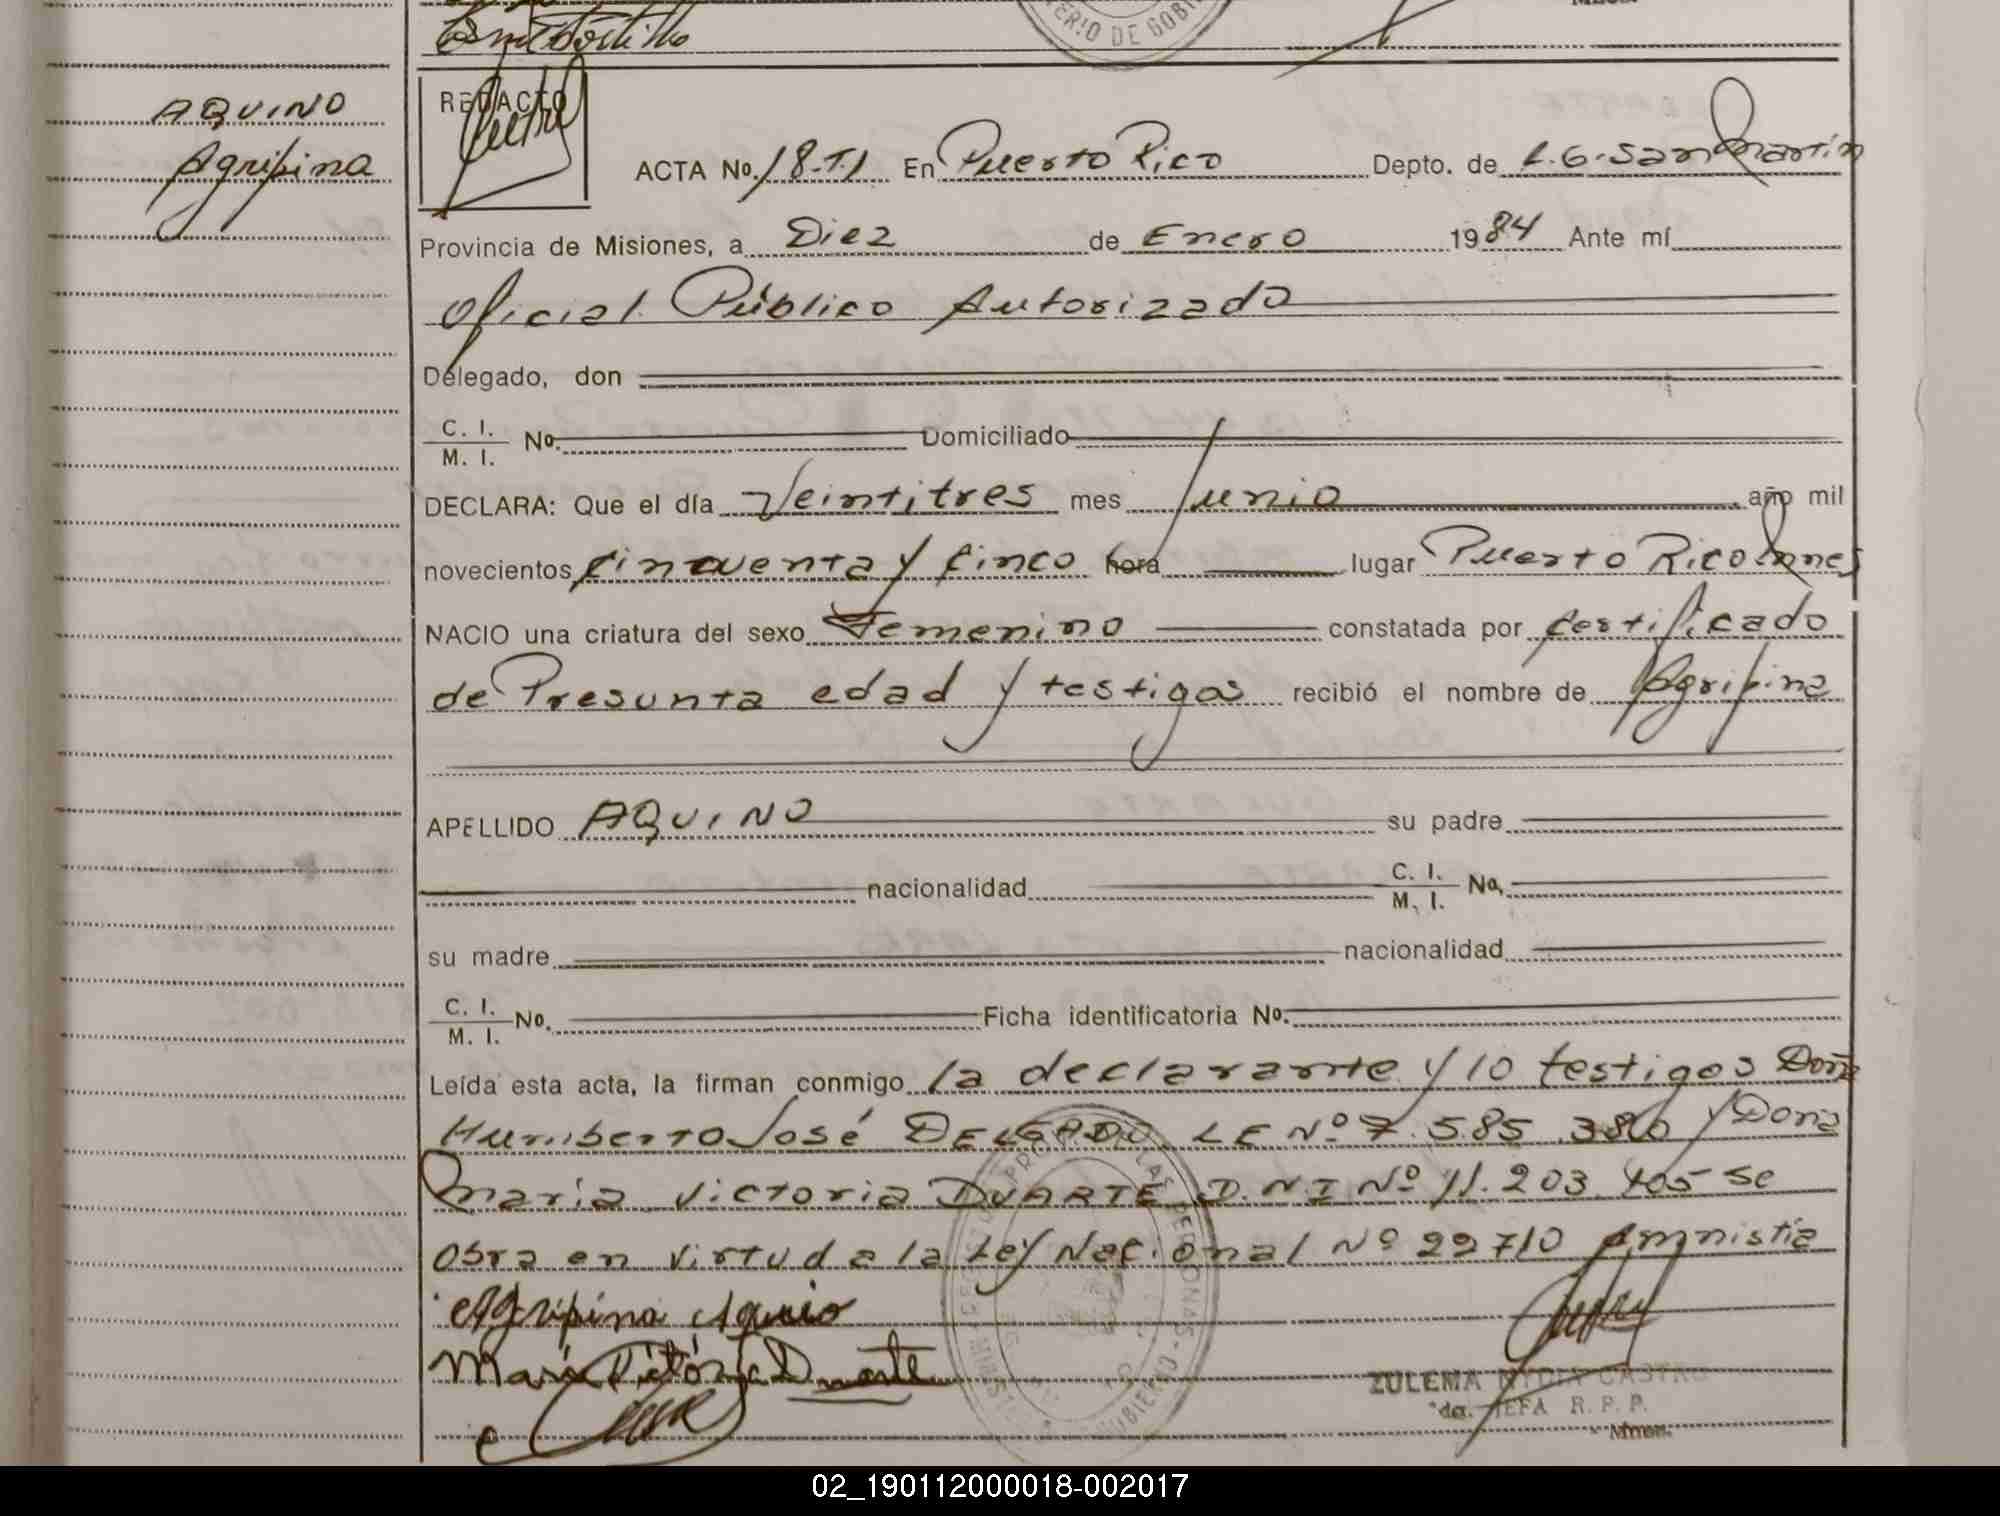 AQUINO
Agripina
REDACTO
ACTA No. 18-T.I En Puerto Rico Depto. de L.G. San Martín
Provincia de Misiones, a Diez de Enero 1984 Ante mí
Oficial Público Autorizado
Delegado, don
C. I. / M. I. No. Domiciliado
DECLARA: Que el día Veintitres mes Junio año mil
novecientos Cincuenta y Cinco hora lugar Puerto Rico Mnes
NACIO una criatura del sexo Femenino constatada por Certificado
de Presunta edad y testigos recibió el nombre de Agripina
APELLIDO AQUINO su padre
nacionalidad C. I. / M. I. No.
su madre nacionalidad
C. I. / M. I. No. Ficha identificatoria No.
Leída esta acta, la firman conmigo la declarante y lo testigos Don
Humberto José DELGADO LE Nº 7.585.380 y Doña
María Victoria DUARTE D.N.I Nº 11.203.405 se
obra en virtud a la Ley Nacional Nº 22710 Amnistía
Agripina Aquino
María Victória Duarte
ZULEMA NYDIA CASTRO
JEFA R. P. P.
Mnes.
02_190112000018-002017